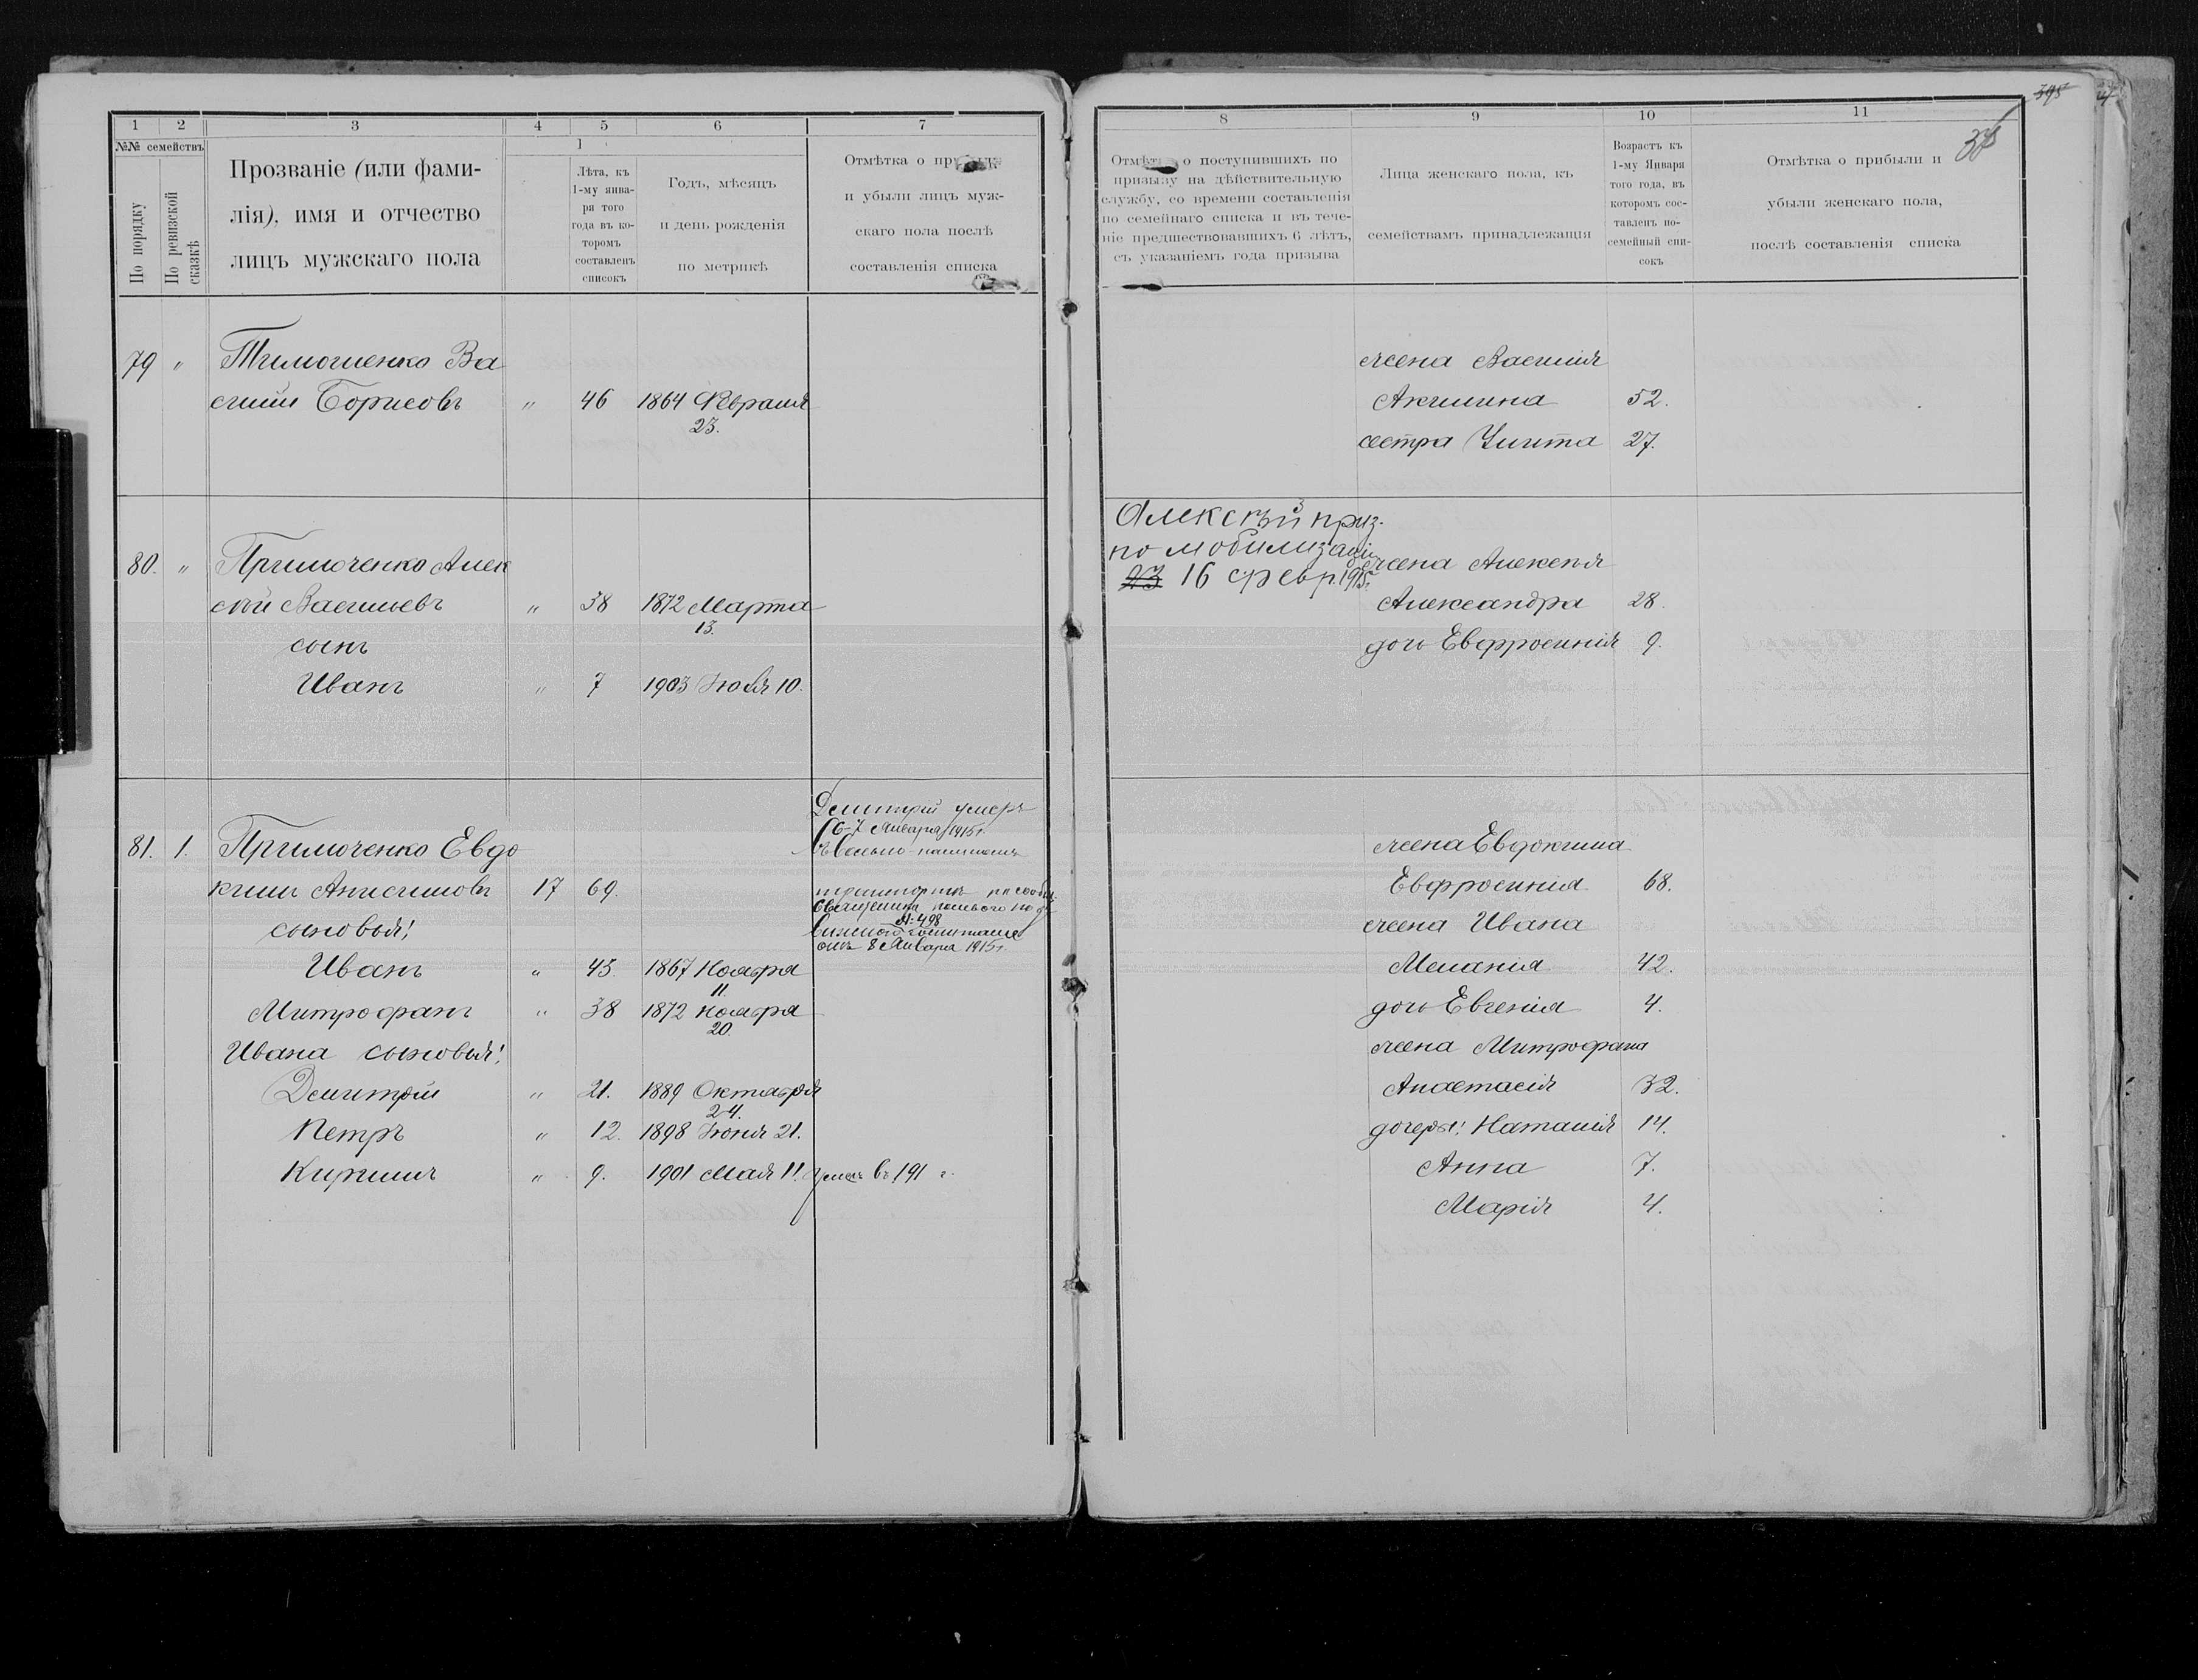 1 2 3 4 5 6 7
№№ семействъ
По порядку
По ревизской сказкѣ
Прозваніе (или фами-
лія), имя и отчество
лицъ мужскаго пола
1
Лѣта, къ
1-му янва-
ря того
года въ ко-
торомъ
составленъ
списокъ
Годъ, мѣсяцъ
и день рожденія
по метрикѣ
Отмѣтка о
и убыли лицъ муж-
скаго пола послѣ
составленія списка
79 " Тимошенко Ва
силій Борисовъ " 46 1864 Февраля
23.
80. " Примоченко Алек
сѣй Васильевъ " 38 1872 Марта
13.
сынъ
Иванъ " 7 1903 Іюля 10.
Дмитрій умеръ
6-7 Января 1915 г.
81. 1. Примоченко Евдо
кимъ Анисимовъ 17 69.
священника полевого
№ 498
отъ 8 Января 1915 г.
сыновья:
Иванъ " 43. 1867 Ноября
11.
Митрофанъ " 38 1872 Ноября
20.
Ивана сыновья:
Дмитрій " 21. 1889 Октября
24.
Петръ " 12. 1898 Іюня 21.
Кириллъ " 9. 1901 Мая 11. Умеръ въ 191 г.
395
37
8 9 10 11
Отмѣтка о поступившихъ по
призыву на дѣйствительную
службу, со времени составленія
по семейнаго списка и въ тече-
ніе предшествовавшихъ 6 лѣтъ,
съ указаніемъ года призыва
Лица женскаго пола, къ
семействамъ принадлежащія
Возрастъ къ
1-му Января
того года, въ
которомъ сос-
тавленъ по-
семейный спи-
сокъ
Отмѣтка о прибыли и
убыли женскаго пола,
послѣ составленія списка
жена Василія
Акилина 52.
сестра Улита 27.
Алексѣй приз.
по мобилизаціи
23 16 февр. 1915 г.
жена Алексѣя
Александра 28.
дочь Евфросинія 9.
жена Евдокима
Евфросинія 68.
жена Ивана
Меланія 42.
дочь Евгенія 4.
жена Митрофана
Анастасія 32.
дочери: Наталія 14.
Анна 7.
Марія 4.